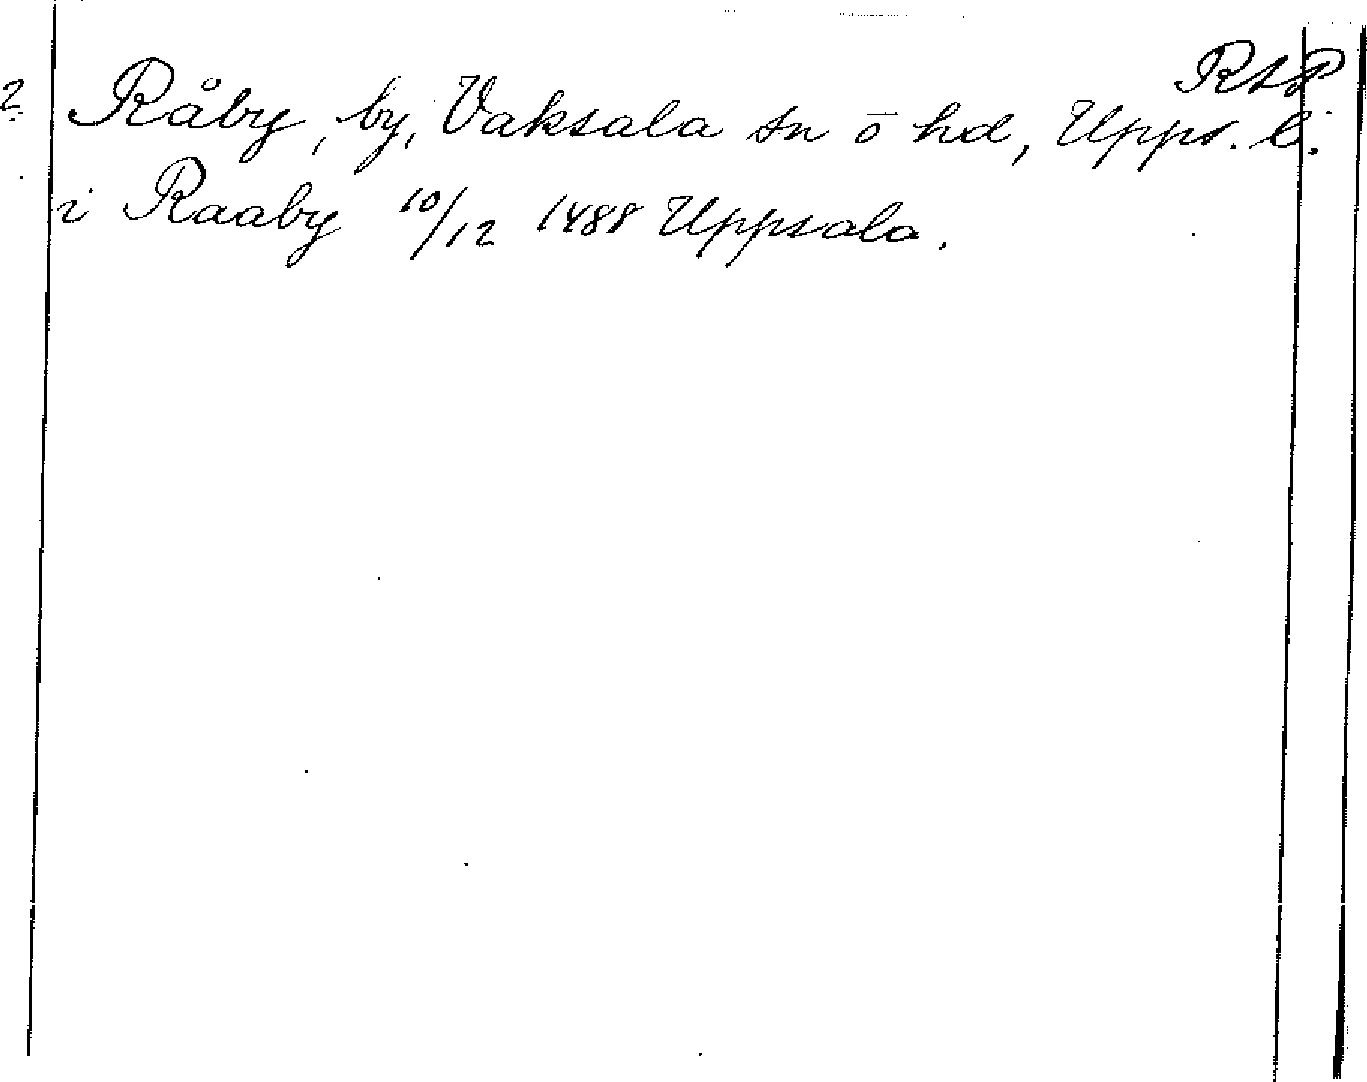 RAP
2. Råby, by, Vaksala sn o hd, Upps. l.
i Raaby 10/12 1488 Uppsala.